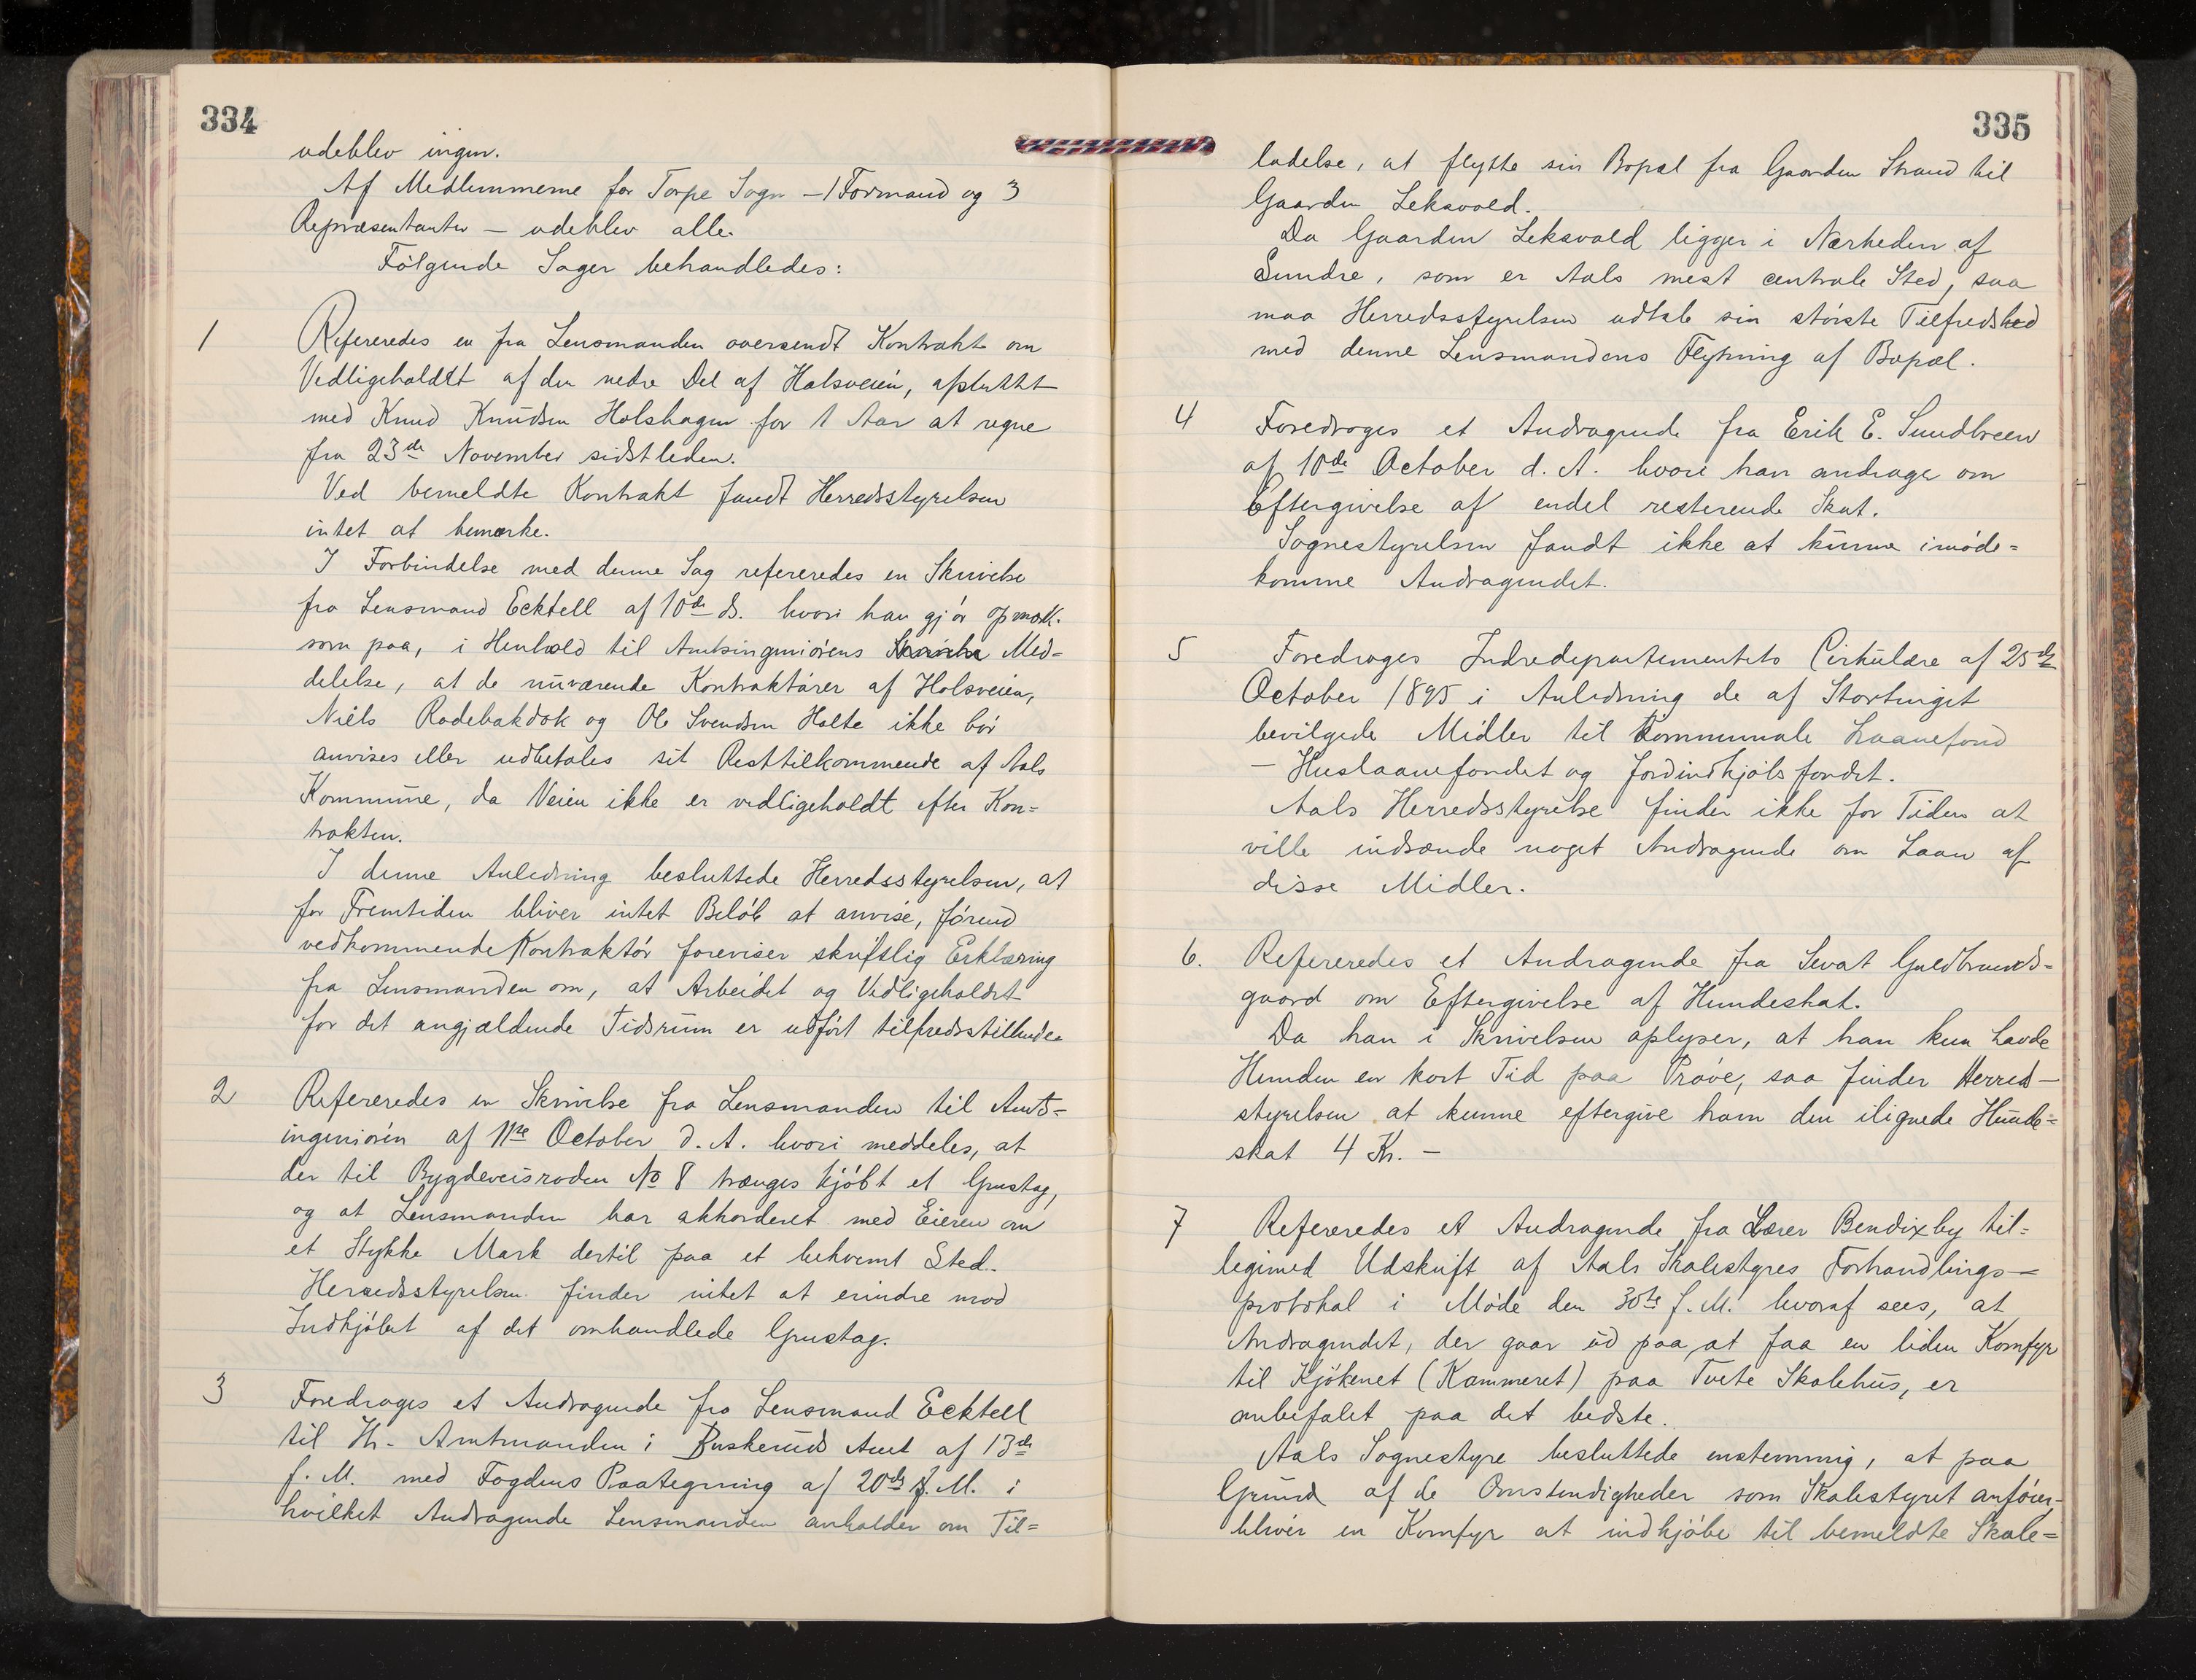 334
udeblev ingen.
Af Medlemmerne for Torpe Sogn - 1 Formand og 3
Repræsentanter - udeblev alle.
Følgende Sager behandledes:
1 Refereredes en fra Lensmanden oversendt Kontrakt om
Vedligeholdet af den nedre Del af Holsveien, afsluttet
med Knud Knudsen Holshagen for 1 Aar at regne
fra 23de November sidstleden.
Ved bemeldte Kontrakt fandt Herredsstyrelsen
intet at bemærke.
I Forbindelse med denne Sag refereredes en Skrivelse
fra Lensmand Ecktell af 10de ds. hvori han gjør opmærk-
som paa, i Henhold til Amtsingeniørens Med=
delelse, at de nuværende Kontraktører af Holsveien,
Niels Rodebakdok og Ole Svendsen Holte ikke bør
anvises eller udbetales sit Resttilkommende af Aals
Kommune, da Veien ikke er vedligeholdt efter Kon=
trakten.
I denne Anledning besluttede Herredsstyrelsen, at
for Fremtiden bliver intet Beløb at anvise, førend
vedkommende Kontraktør foreviser skriftslig Erklæring
fra Lensmanden om, at Arbeidet og Vedligeholdet
for det angjældende Tidsrum er udført tilfredsstillende.
2 Refereredes en Skrivelse fra Lensmanden til Amts=
ingeniøren af 11te October d. A. hvori meddeles, at
der til Bygdeveisroden No 8 trænges kjøbt et Grustag,
og at Lensmanden har akkorderet med Eieren om
et Stykke Mark dertil paa et bekvemt Sted.
Herredsstyrelsen finder intet at erindre mod
Indkjøbet af det omhandlede Grustag.
3 Foredroges et Andragende fra Lensmand Ecktell
til Hr. Amtmanden i Buskeruds Amt af 13de
f. M. med Fogdens Paategning af 20de f. M. i
hvilket Andragende Lensmanden anholder om Til=
335
ladelse, at flytte sin Bopæl fra Gaarden Strand til
Gaarden Leksvold.
Da Gaarden Leksvold ligger i Nærheden af
Sundre, som er Aals mest centrale Sted, saa
maa Herredsstyrelsen udtale sin største Tilfredshed
med denne Lensmandens Flytning af Bopæl.
4 Foredroges et Andragende fra Erik E. Sundbreen
af 10de October d. A. hvori han andrager om
Eftergivelse af endel resterende Skat.
Sognestyrelsen fandt ikke at kunne imøde=
komme Andragendet.
5 Foredroges Indredepartementets Cirkulære af 25de
October 1895 i Anledning de af Stortinget
bevilgede Midler til Kommunale Laanefond
- Huslaanefondet og Jordindkjøbsfondet.
Aals Herredsstyrelse finder ikke for Tiden at
ville indsænde noget Andragende om Laan af
disse Midler.
6. Refereredes et Andragende fra Sevat Guldbrands=
gaard om Eftergivelse af Hundeskat.
Da han i Skrivelsen oplyser, at han kun havde
Hunden en kort Tid paa Prøve, saa finder Herred-
styrelsen at kunne eftergive ham den ilignede Hunde=
skat 4 Kr. -
7 Refereredes et Andragende fra Lærer Bendixby til=
ligemed Udskrift af Aals Skolestyres Forhandlings-
protokol i Møde den 30te f. M. hvoraf sees, at
Andragendet, der gaar ud paa at faa en liden Komfyr
til Kjøkenet (Kammeret) paa Tvete Skolehus, er
anbefalet paa det bedste.
Aals Sognestyre besluttede enstemmig, at paa
Grund af de Omstendigheder som Skolestyret anfører,
bliver en Komfyr at indkjøbe til bemeldte Skole=